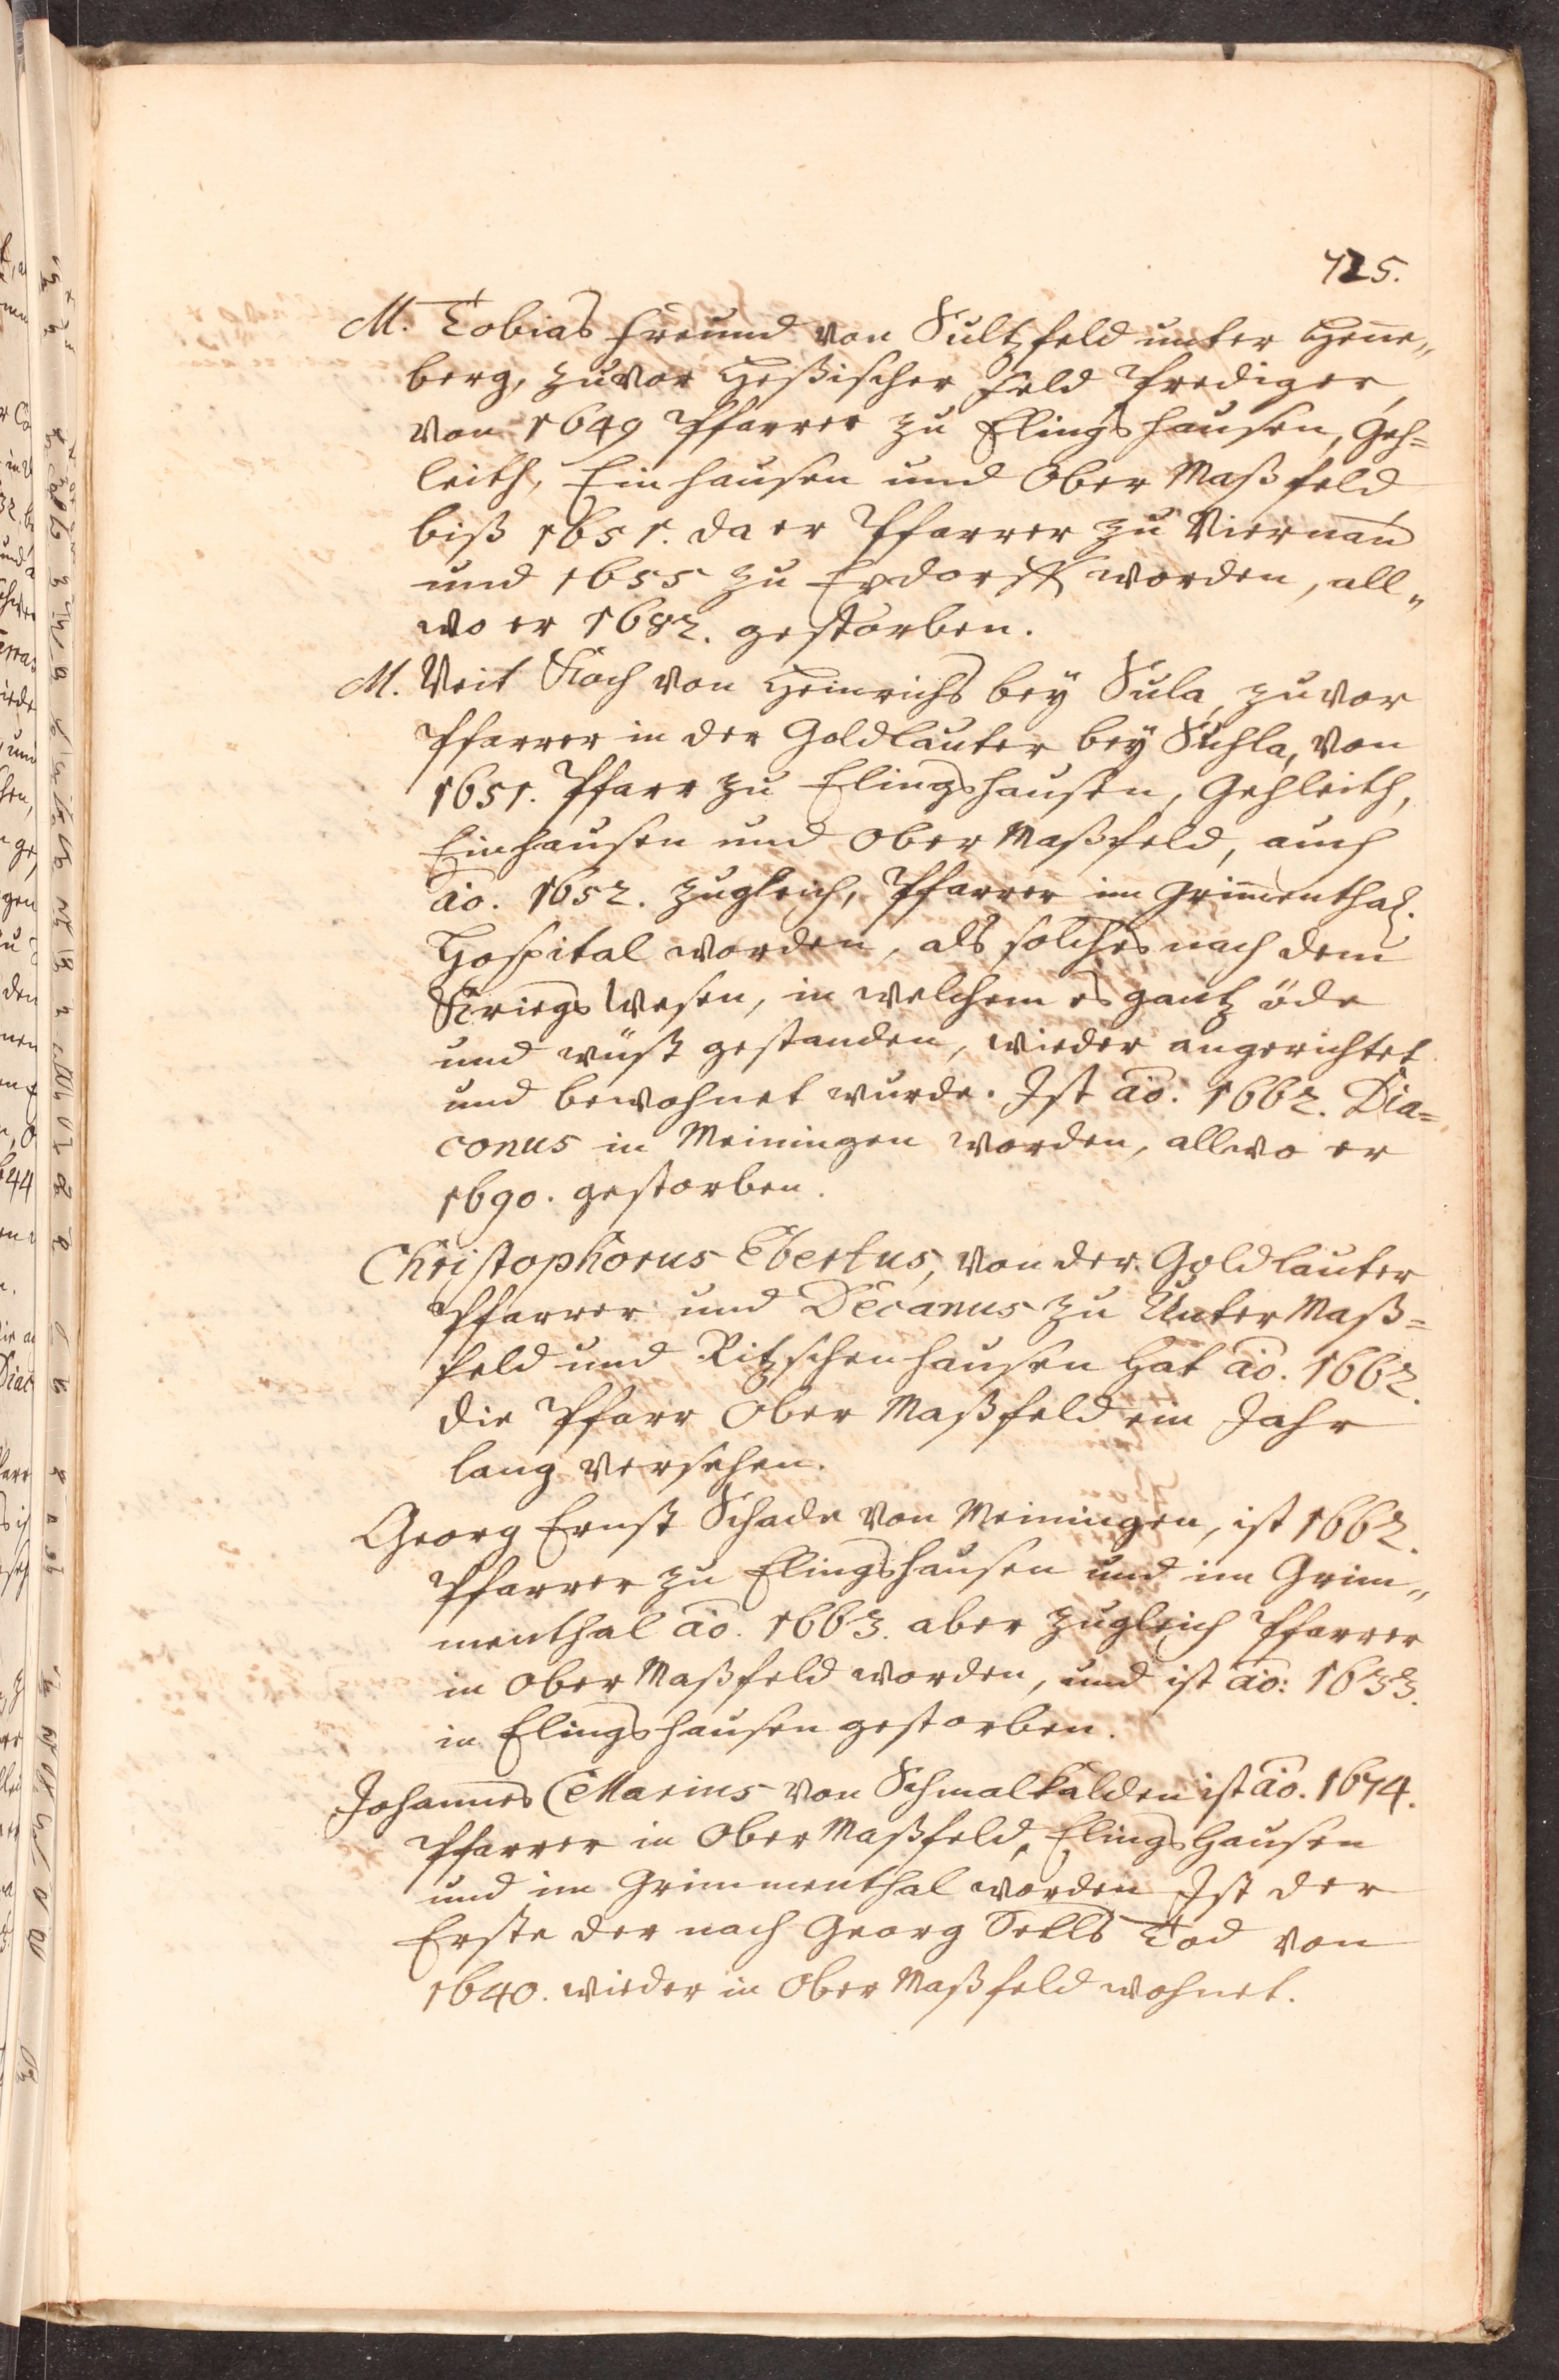 725.
M. Tobias Freund von Sultzfeld unter Henne„
berg, zuvor Heßischer Feld Prediger,
von 1649 Pfarrer zu Elingshausen, Geh=
leith, Einhausen und Ober Maßfeld
biß 1651. da er Pfarrer zu Viernau
und 1655 zu Exdorff worden, all„
wo er 1682. gestorben.
M. Veit Koch von Heinrichs bey Sula, zuvor
Pfarrer in der Goldlauter bey Suhla, von
1651. Pfarr zu Elingshausen, Gehleith,
Einhausen und Ober Maßfeld, auch
ao. 1652. zugleich, Pfarrer im Grimenthal.
Hospital worden, als solches nach dem
Kriegs Wesen, in welchem es gantz öde
und wüst gestanden, wieder angerichtet
und bewohnet wurde. Ist ao. 1662. Dia=
conus in Meiningen worden, allwo er
1690. gestorben.
Christophorus Ebertus, von der Goldlauter
Pfarrer und Decanus zu Unter Maß=
feld und Ritzschenhausen hat ao. 1662.
die Pfarr Ober Maßfeld ein Jahr
lang versehen.
Georg Ernst Schade von Meiningen, ist 1662.
Pfarrer zu Elingshausen und im Grim„
menthal ao. 1663. aber zugleich Pfarrer
in Ober Maßfeld worden, und ist ao: 1633.
in Elingshausen gestorben.
Johannes Cellarius von Schmalkalden ist ao. 1674.
Pfarrer in Ober Maßfeld, Elings Hausen
und im Grimmenthal worden Ist der
Erste der nach Georg Tod von
1640. wieder in Ober Maßfeld wohnet.